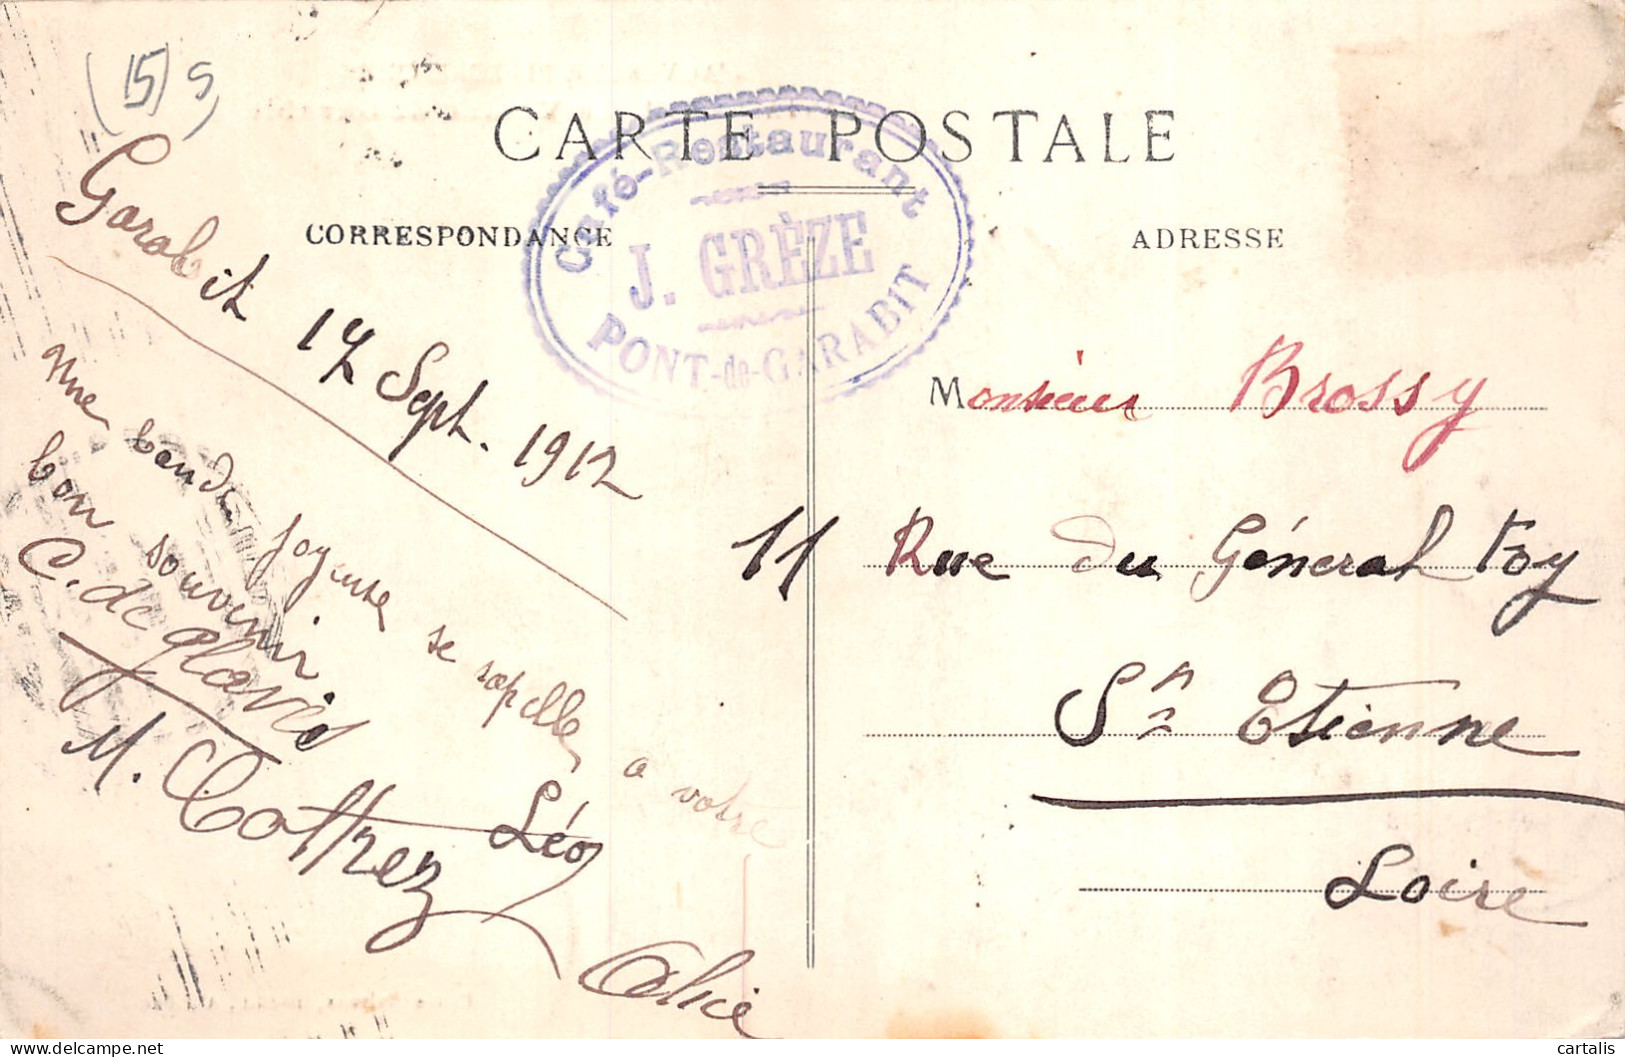 (15) S
CARTE POSTALE
Café-Restaurant
J. GRÈZE
PONT-de-GARABIT
CORRESPONDANCE
ADRESSE
Garabit 17 Sept. 1912
Une bande joyeuse se rapelle a votre
bon souvenir
C. de
M.
Léo
Alice
Monsieur Brossy
11 Rue du Général Foy
St Etienne
Loire
cartalis